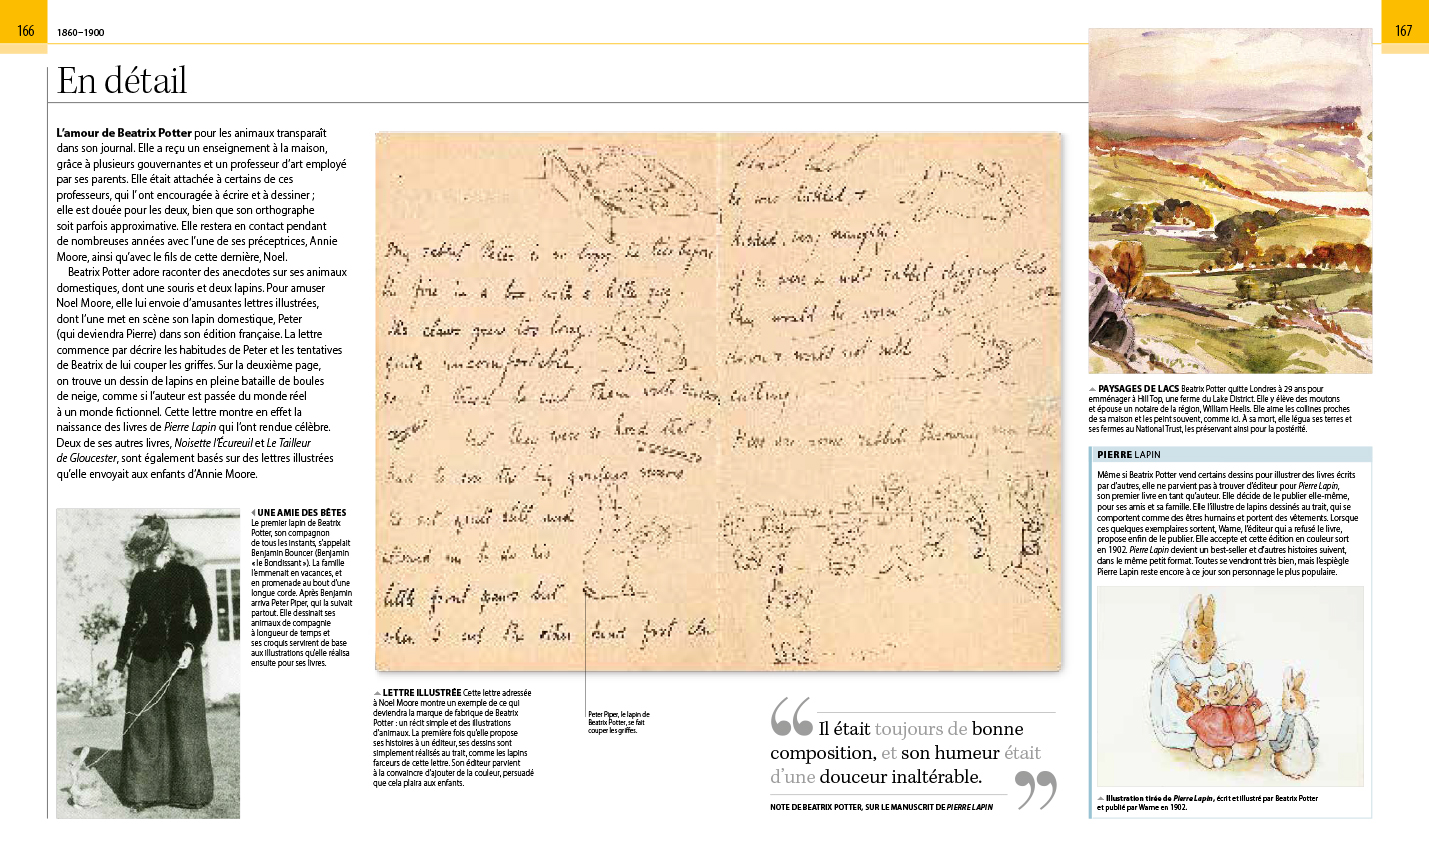 166
1860–1900
167
En détail
L’amour de Beatrix Potter pour les animaux transparaît
dans son journal. Elle a reçu un enseignement à la maison,
grâce à plusieurs gouvernantes et un professeur d’art employé
par ses parents. Elle était attachée à certains de ces
professeurs, qui l’ ont encouragée à écrire et à dessiner ;
elle est douée pour les deux, bien que son orthographe
soit parfois approximative. Elle restera en contact pendant
de nombreuses années avec l’une de ses préceptrices, Annie
Moore, ainsi qu’avec le fils de cette dernière, Noel.
Beatrix Potter adore raconter des anecdotes sur ses animaux
domestiques, dont une souris et deux lapins. Pour amuser
Noel Moore, elle lui envoie d’amusantes lettres illustrées,
dont l’une met en scène son lapin domestique, Peter
(qui deviendra Pierre) dans son édition française. La lettre
commence par décrire les habitudes de Peter et les tentatives
de Beatrix de lui couper les griffes. Sur la deuxième page,
on trouve un dessin de lapins en pleine bataille de boules
de neige, comme si l’auteur est passée du monde réel
à un monde fictionnel. Cette lettre montre en effet la
naissance des livres de Pierre Lapin qui l’ont rendue célèbre.
Deux de ses autres livres, Noisette l’Écureuil et Le Tailleur
de Gloucester, sont également basés sur des lettres illustrées
qu’elle envoyait aux enfants d’Annie Moore.
UNE AMIE DES BÊTES
Le premier lapin de Beatrix
Potter, son compagnon
de tous les instants, s’appelait
Benjamin Bouncer (Benjamin
« le Bondissant »). La famille
l’emmenait en vacances, et
en promenade au bout d’une
longue corde. Après Benjamin
arriva Peter Piper, qui la suivait
partout. Elle dessinait ses
animaux de compagnie
à longueur de temps et
ses croquis servirent de base
aux illustrations qu’elle réalisa
ensuite pour ses livres.
LETTRE ILLUSTRÉE Cette lettre adressée
à Noel Moore montre un exemple de ce qui
deviendra la marque de fabrique de Beatrix
Potter : un récit simple et des illustrations
d’animaux. La première fois qu’elle propose
ses histoires à un éditeur, ses dessins sont
simplement réalisés au trait, comme les lapins
farceurs de cette lettre. Son éditeur parvient
à la convaincre d’ajouter de la couleur, persuadé
que cela plaira aux enfants.
Peter Piper, le lapin de
Beatrix Potter, se fait
couper les griffes.
“ Il était toujours de bonne
composition, et son humeur était
d’une douceur inaltérable. ”
NOTE DE BEATRIX POTTER, SUR LE MANUSCRIT DE PIERRE LAPIN
PAYSAGES DE LACS Beatrix Potter quitte Londres à 29 ans pour
emménager à Hill Top, une ferme du Lake District. Elle y élève des moutons
et épouse un notaire de la région, William Heelis. Elle aime les collines proches
de sa maison et les peint souvent, comme ici. À sa mort, elle légua ses terres et
ses fermes au National Trust, les préservant ainsi pour la postérité.
PIERRE LAPIN
Même si Beatrix Potter vend certains dessins pour illustrer des livres écrits
par d’autres, elle ne parvient pas à trouver d’éditeur pour Pierre Lapin,
son premier livre en tant qu’auteur. Elle décide de le publier elle-même,
pour ses amis et sa famille. Elle l’illustre de lapins dessinés au trait, qui se
comportent comme des êtres humains et portent des vêtements. Lorsque
ces quelques exemplaires sortent, Warne, l’éditeur qui a refusé le livre,
propose enfin de le publier. Elle accepte et cette édition en couleur sort
en 1902. Pierre Lapin devient un best-seller et d’autres histoires suivent,
dans le même petit format. Toutes se vendront très bien, mais l’espiègle
Pierre Lapin reste encore à ce jour son personnage le plus populaire.
Illustration tirée de Pierre Lapin, écrit et illustré par Beatrix Potter
et publié par Warne en 1902.